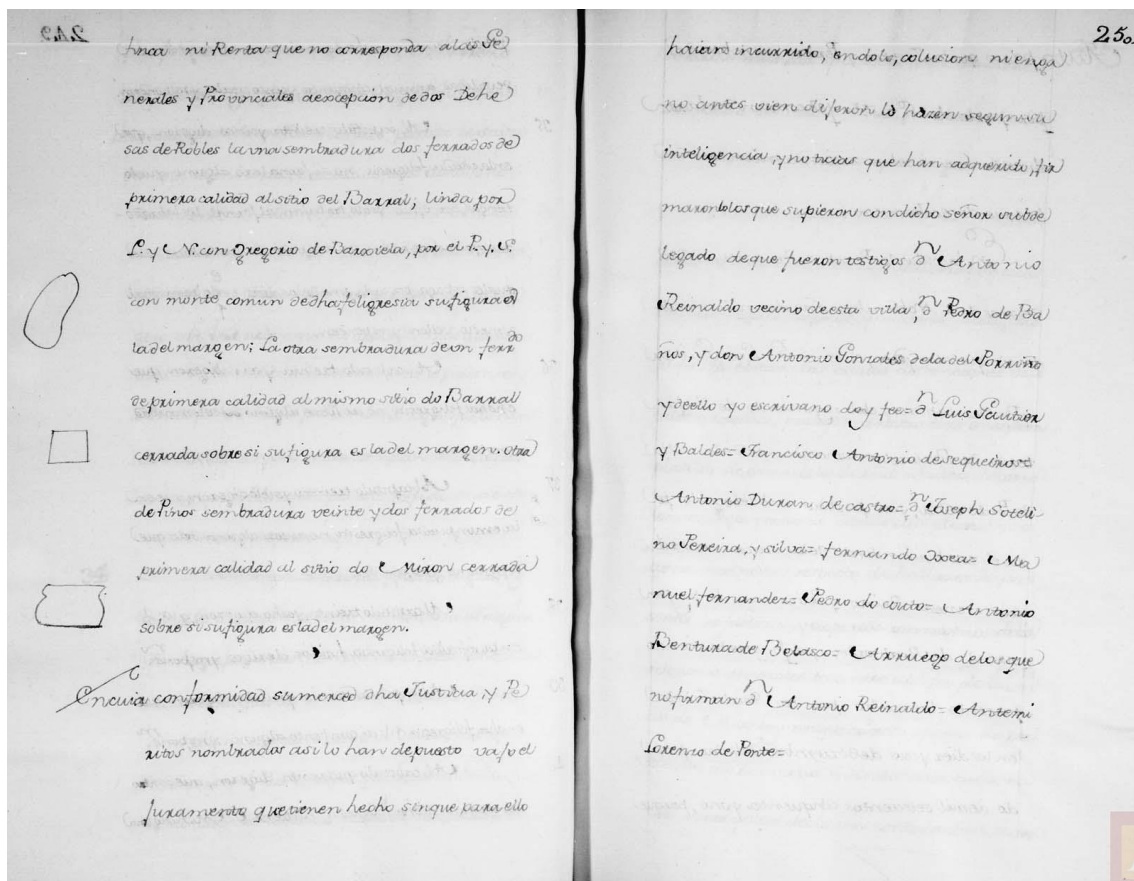 finca ni Renta que no corresponda alas Ge
nerales y Provinciales aexcepción de dos Dehe
sas de Robles la una sembradura dos ferrados de
primera calidad al sitio del Barral, linda por
L. y N. con Gregorio de Barciela, por el P. y S.
con monte comun de dha feligresia su figura es
la del margen; La otra sembradura de un ferrdo
de primera calidad al mismo sitio do Barral
cerrada sobre si su figura es la del margen. otra
de Pinos sembradura veinte y dos ferrados de
primera calidad al sitio do Miron cerrada
sobre si su figura es la del margen.
En cuia conformidad su merced dha Justicia, y Pe
ritos nombrados asi lo han depuesto vajo el
Juramento que tienen hecho sin que para ello
250.
haian incurrido, en dolo, colusion ni enga
no antes vien dijeron lo hazen segun su
inteligencia, y noticias que han adquerido, fir
maronlo los que supieron con dicho señor subde
legado de que fueron testigos dn Antonio
Reinaldo vecino de esta villa, dn Pedro de Ba
ños, y don Antonio Gonzales de la del Porriño
y de ello yo escrivano doy fee= dn Luis Gautier
y Baldes= Francisco Antonio de sequeiros=
Antonio Duran de castro= dn Joseph Soteli
no Pereira, y silva= fernando Doxea= Ma
nuel fernandez= Pedro do couto= Antonio
Bentura de Belasco= Arruego de los que
no firman dn Antonio Reinaldo= Antemi
Lorenzo de Ponte=